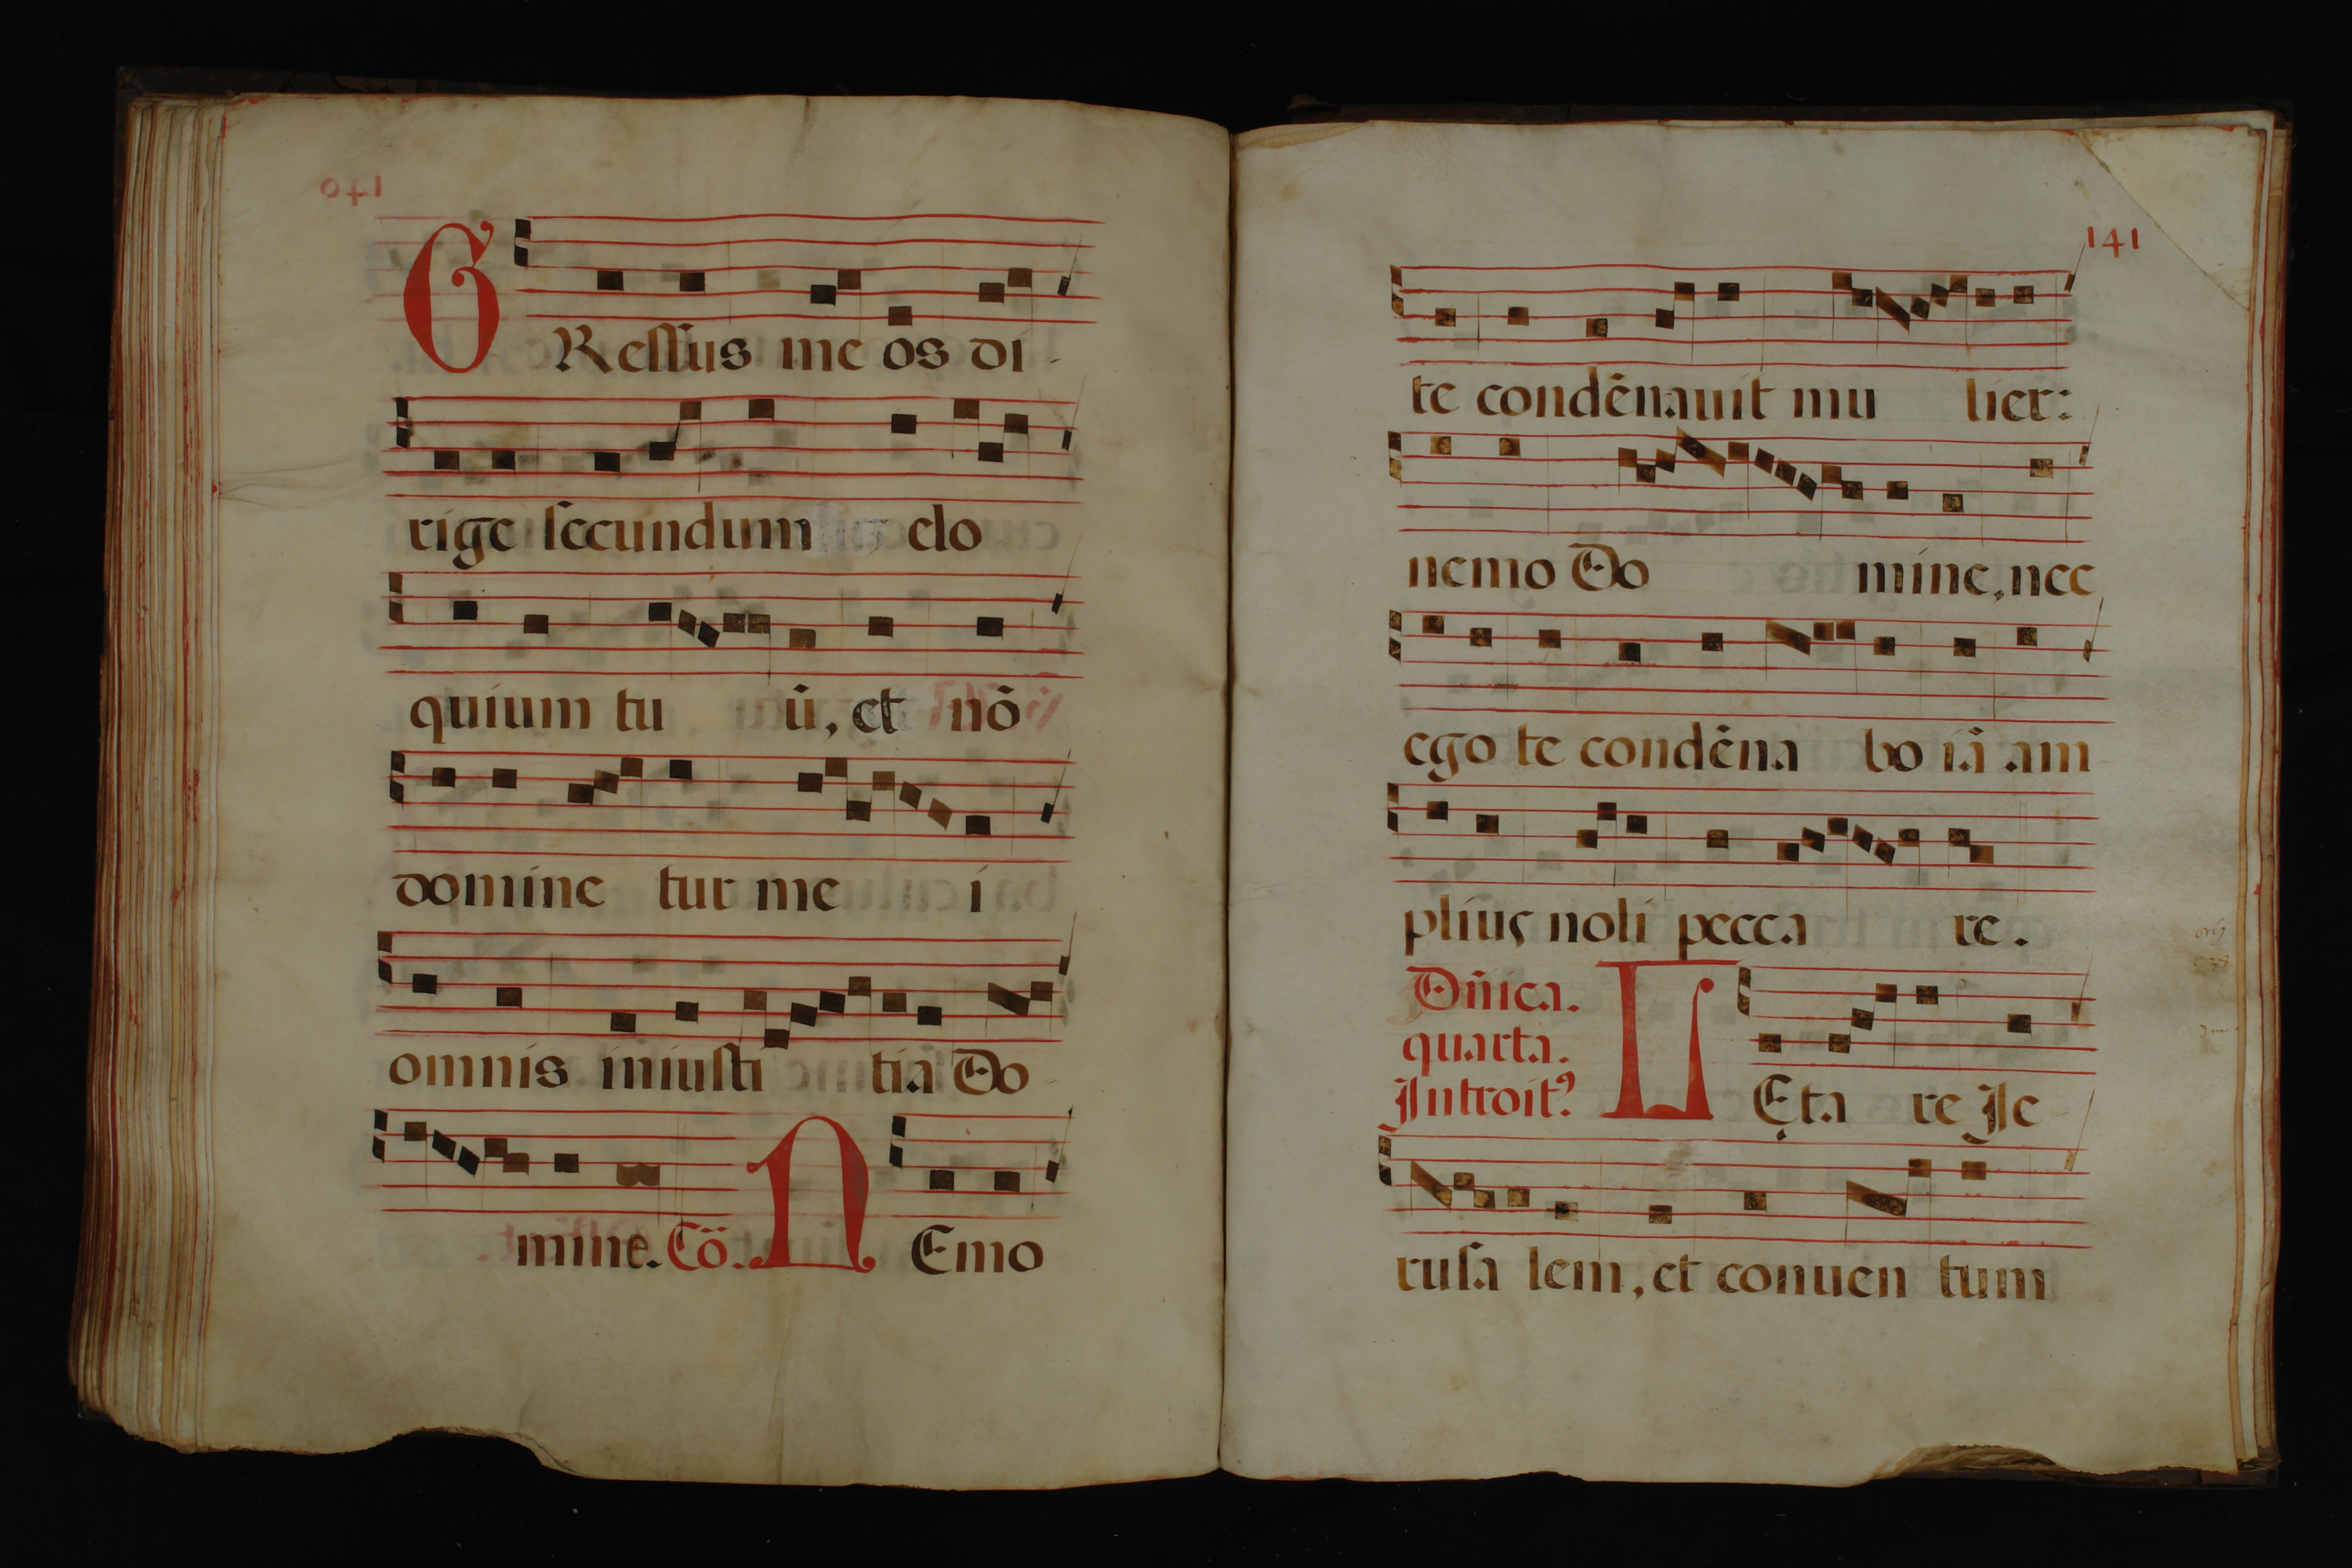 GRessus me os di
rige secundum elo
quium tu ū, et nō
domine tur me i
omnis iniusti tia Do
mine. Cō. NEmo
141
te condēnauit mu lier:
nemo Do mine, nec
ego te condēna bo iā am
plius noli pecca re.
Dñica.
quarta.
Introit⁹.
LĘta re Je
rusa lem, et conuen tum